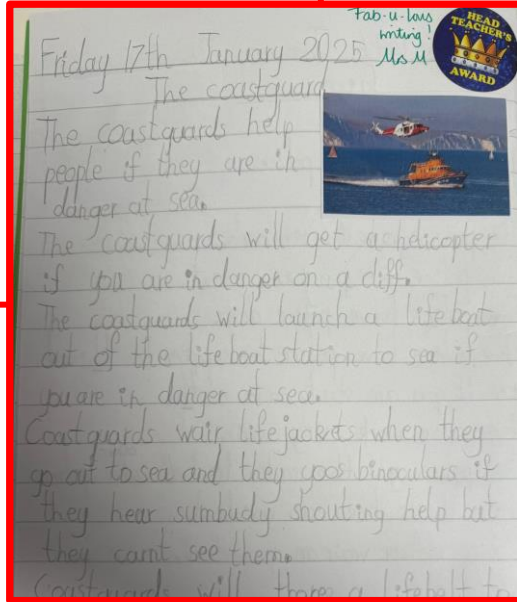 Fab-u-lous
writing!
Mrs M
HEAD
TEACHER'S
AWARD
Friday 17th January 2025
The coastguard
The coastguards help
people if they are in
danger at sea.
The coastguards will get a helicopter
if you are in danger on a cliff.
The coastguards will launch a lifeboat
out of the lifeboat station to sea if
you are in danger at sea.
Coastguards wair lifejackets when they
go out to sea and they yoos binoculars if
they hear sumbudy shouting help but
they carnt see them.
Coastguards will a lifebelt to